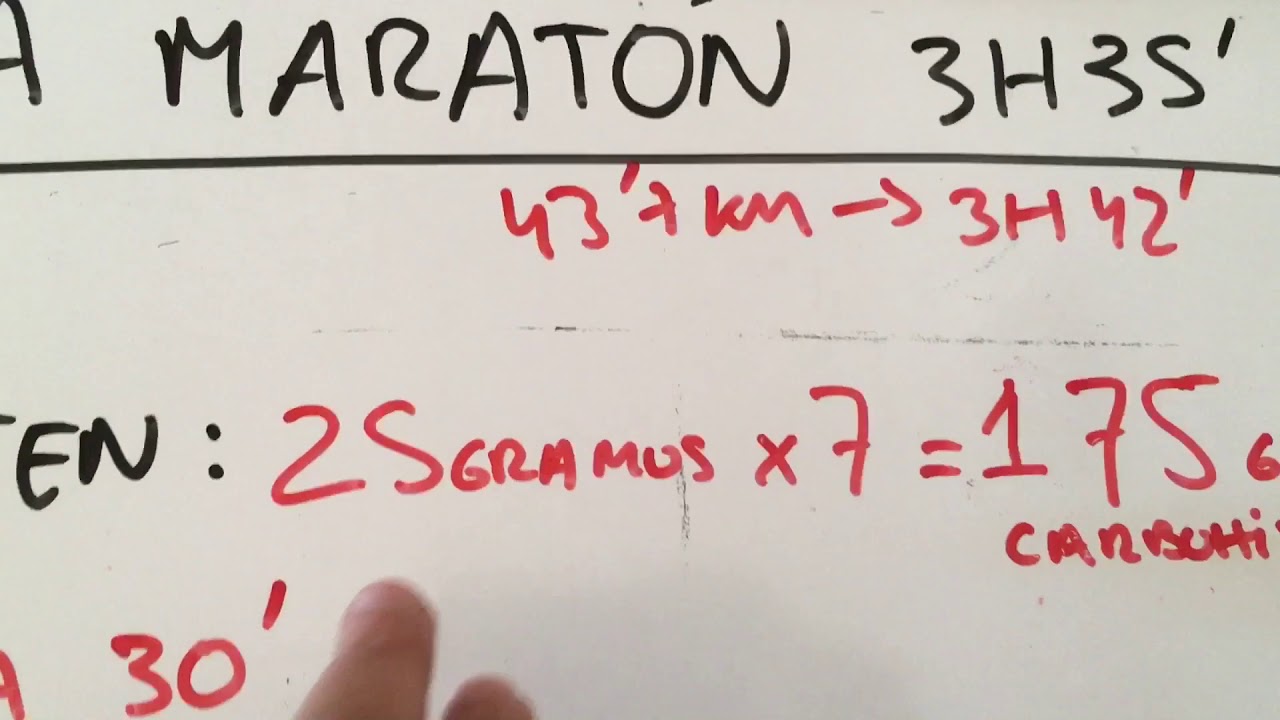 A MARATÓN 3H35'
43'7 km → 3H42'
TEN: 25 GRAMOS x 7 = 175 G
CARBOHi
A 30'